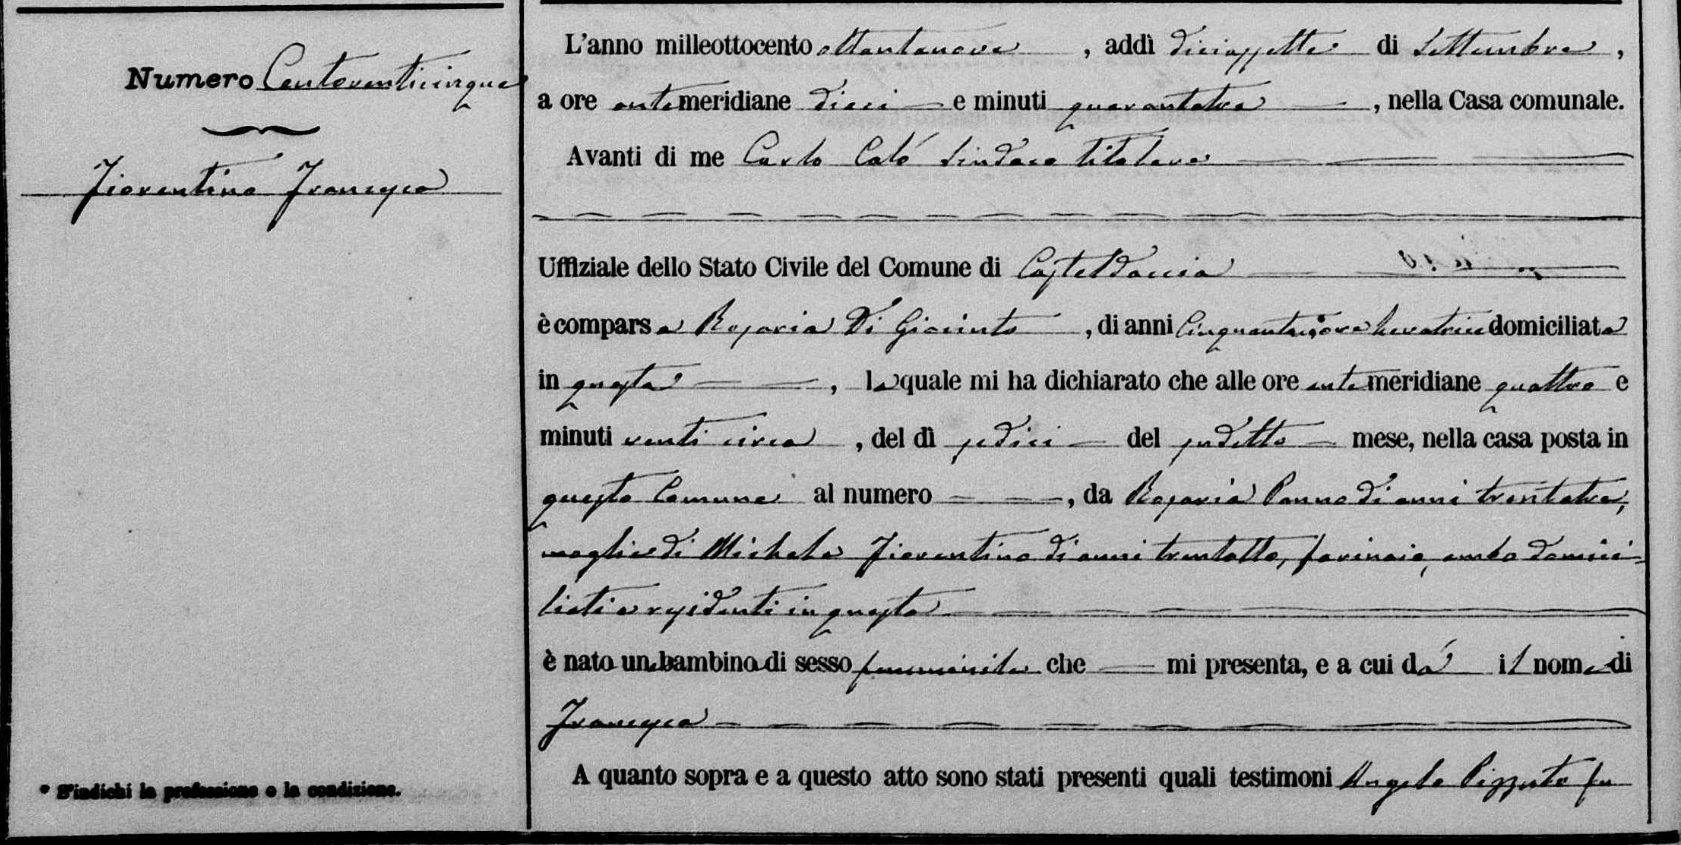 Numero Centoventicinque
Fiorentino Francesca
* S'indichi la professione o la condizione.
L'anno milleottocento ottantanove, addì diciassette di Settembre,
a ore antemeridiane dieci e minuti quarantatre, nella Casa comunale.
Avanti di me Carlo Calò Sindaco titolare
Uffiziale dello Stato Civile del Comune di Casteldaccia
è comparsa Rosaria Di Giacinto, di anni levatrice domiciliata
in questa, la quale mi ha dichiarato che alle ore antemeridiane quattro e
minuti venti circa, del dì sedici del sudetto mese, nella casa posta in
questo Comune al numero, da Rosaria Panno di anni trentatre,
moglie di Michele Fiorentino di anni trentotto, farinaio, ambo domici-
liati e residenti in questa
è nato un bambino di sesso femminile che mi presenta, e a cui dà il nome di
Francesca
A quanto sopra e a questo atto sono stati presenti quali testimoni Angelo Pizzuto fu